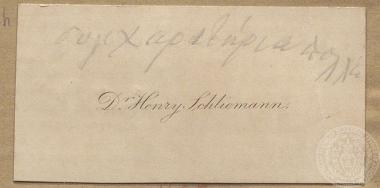 συγχαρητήρια πολλά
Dr Henry Schliemann.